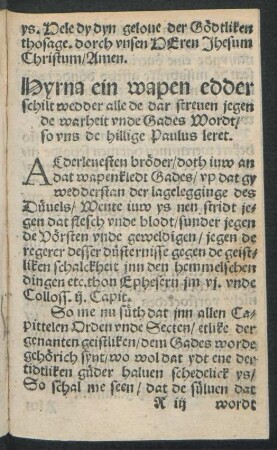 ys. Vele dy dyn gelove der Gödtliken
thosage. dorch vnsen HEren Jhesum
Christum / Amen.
Hyrna ein wapen edder
schilt wedder alle de dar streuen jegen
de warheit vnde Gades Wordt /
so vns de hillige Paulus leret.
Alderleuesten bröder / doth iuw an
dat wapenkledt Gades / vp dat gy
wedderstan der lagelegginge des
Düuels / Wente iuw ys nen stridt je-
gen dat flesch vnde blodt / sunder jegen
de Vörsten vnde geweldigen / jegen de
regerer desser düsternisse gegen de geist-
liken schalckheit jnn den hemmelschen
dingen etc. thon Ephesern jm vj. vnde
Colloss. ij. Capit.
So me nu süth dat jnn allen Ca-
pittelen Orden vnde Secten / etlike der
genanten geistliken / dem Gades worde
gehörich synt / wo wol dat ydt ene der
tidtliken güder haluen schedelick ys /
So schal me seen / dat de süluen dat
R iij wordt